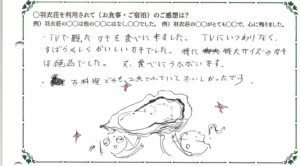 ○羽衣荘を利用されて（お食事・ご宿泊）のご感想は？
例）羽衣荘は他の○○にはなく、○○でした。 例）羽衣荘の○○がとても○○で、心に残りました。
・TVで観た カキを食べに来ました。 TVにいつわりなく、
すばらしくおいしいカキでした。 特に 特大サイズのカキ
は絶品でした。 又、食べにうかがいます。
・お料理 どれも 工夫されていて おいしかったです